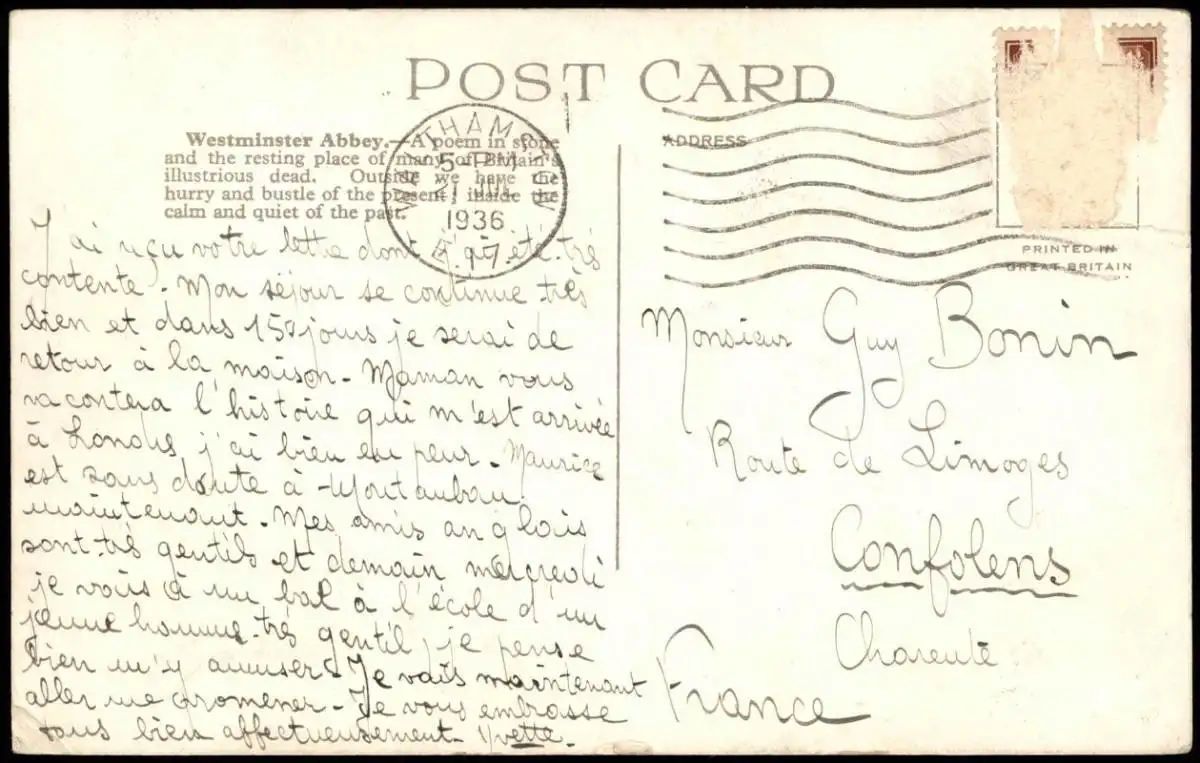 POST CARD
Westminster Abbey.—A poem in stone
and the resting place of many of Britain's
illustrious dead. Outside we have the
hurry and bustle of the present; inside the
calm and quiet of the past.
5-PM
21 JUL
1936
E.17
ADDRESS
PRINTED IN
GREAT BRITAIN
J'ai reçu votre lett. dont j'ai été très
contente. Mon séjour se continue très
bien et dans 15 jours je serai de
retour à la maison - Maman vous
racontera l'histoire qui m'est arrivée
à Londres j'ai bien eu peur - Maurice
est sans doute à Montauban
maintenant - Mes amis anglais
sont très gentils et demain mercredi
je vais à un bal à l'école d'un
jeune homme très gentil, je pense
bien m'y amuser. Je vais maintenant
aller me promener - Je vous embrasse
tous bien affectueusement Yvette.
Monsieur Guy Bonin
Route de Limoges
Confolens
Charente
France